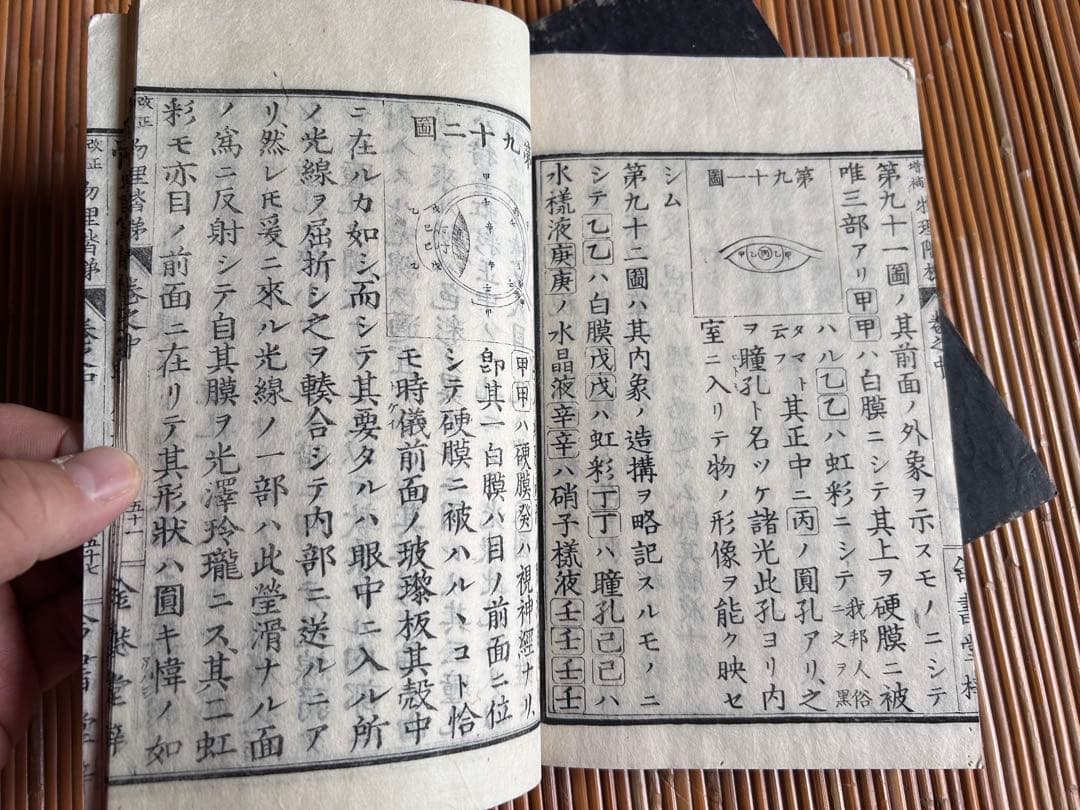 第九十一圖ノ其前面ノ外象ヲ示スモノニシテ
唯三部アリ甲甲ハ白膜ニシテ其上ヲ硬膜ニ被
ハル乙乙ハ虹彩ニシテ我邦人俗ニ之ヲ黒
タマト云フ其正中ニ丙ノ圓孔アリ之
ヲ瞳孔ト名ツケ諸光此孔ヨリ内
室ニ入リテ物ノ形像ヲ能ク映セ
第九十一圖
甲乙丙乙甲
シム
第九十二圖ハ其内象ノ造搆ヲ略記スルモノニ
シテ乙乙ハ白膜戊戊ハ虹彩丁丁ハ瞳孔己己ハ
水樣液庚庚ノ水晶液辛辛ハ硝子樣液壬壬壬壬
甲甲ハ硬膜癸ハ視神經ナリ
第九十二圖
即其一白膜ハ目ノ前面ニ位
シテ硬膜ニ被ハルヽコト恰
モ時儀前面ノ玻瓈板其殻中
ニ在ルカ如シ而シテ其要タルハ眼中ニ入ル所
ノ光線ヲ屈折シ之ヲ輳合シテ内部ニ送ルニア
リ然レモ爰ニ來ル光線ノ一部ハ此瑩滑ナル面
ノ爲ニ反射シテ自其膜ヲ光澤玲瓏ニス其二虹
彩モ亦目ノ前面ニ在リテ其形狀ハ圓キ幃ノ如
改正
物理階梯
卷之中
五十七